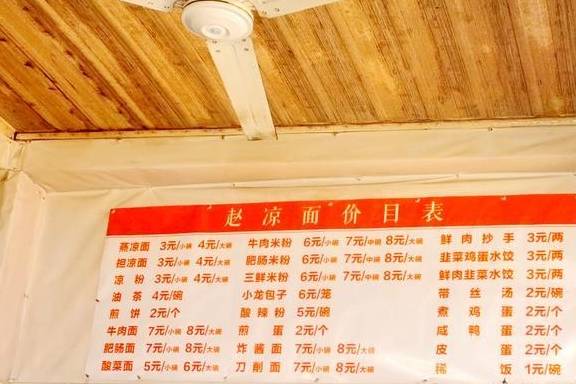 赵凉面价目表
蒸凉面 3元/小碗 4元/大碗 牛肉米粉 6元/小碗 7元/中碗 8元/大碗 鲜肉抄手 3元/两
担凉面 3元/小碗 4元/大碗 肥肠米粉 6元/小碗 7元/中碗 8元/大碗 韭菜鸡蛋水饺 3元/两
凉粉 3元/小碗 4元/大碗 三鲜米粉 6元/小碗 7元/中碗 8元/大碗 鲜肉韭菜水饺 3元/两
油茶 4元/碗 小龙包子 6元/笼 带丝汤 2元/碗
煎饼 2元/个 酸辣粉 5元/碗 煮鸡蛋 2元/个
牛肉面 7元/小碗 8元/大碗 煎蛋 2元/个 咸鸭蛋 2元/个
肥肠面 7元/小碗 8元/大碗 炸酱面 7元/小碗 8元/大碗 皮蛋 2元/个
酸菜面 5元/小碗 6元/大碗 刀削面 7元/小碗 8元/大碗 稀饭 1元/碗